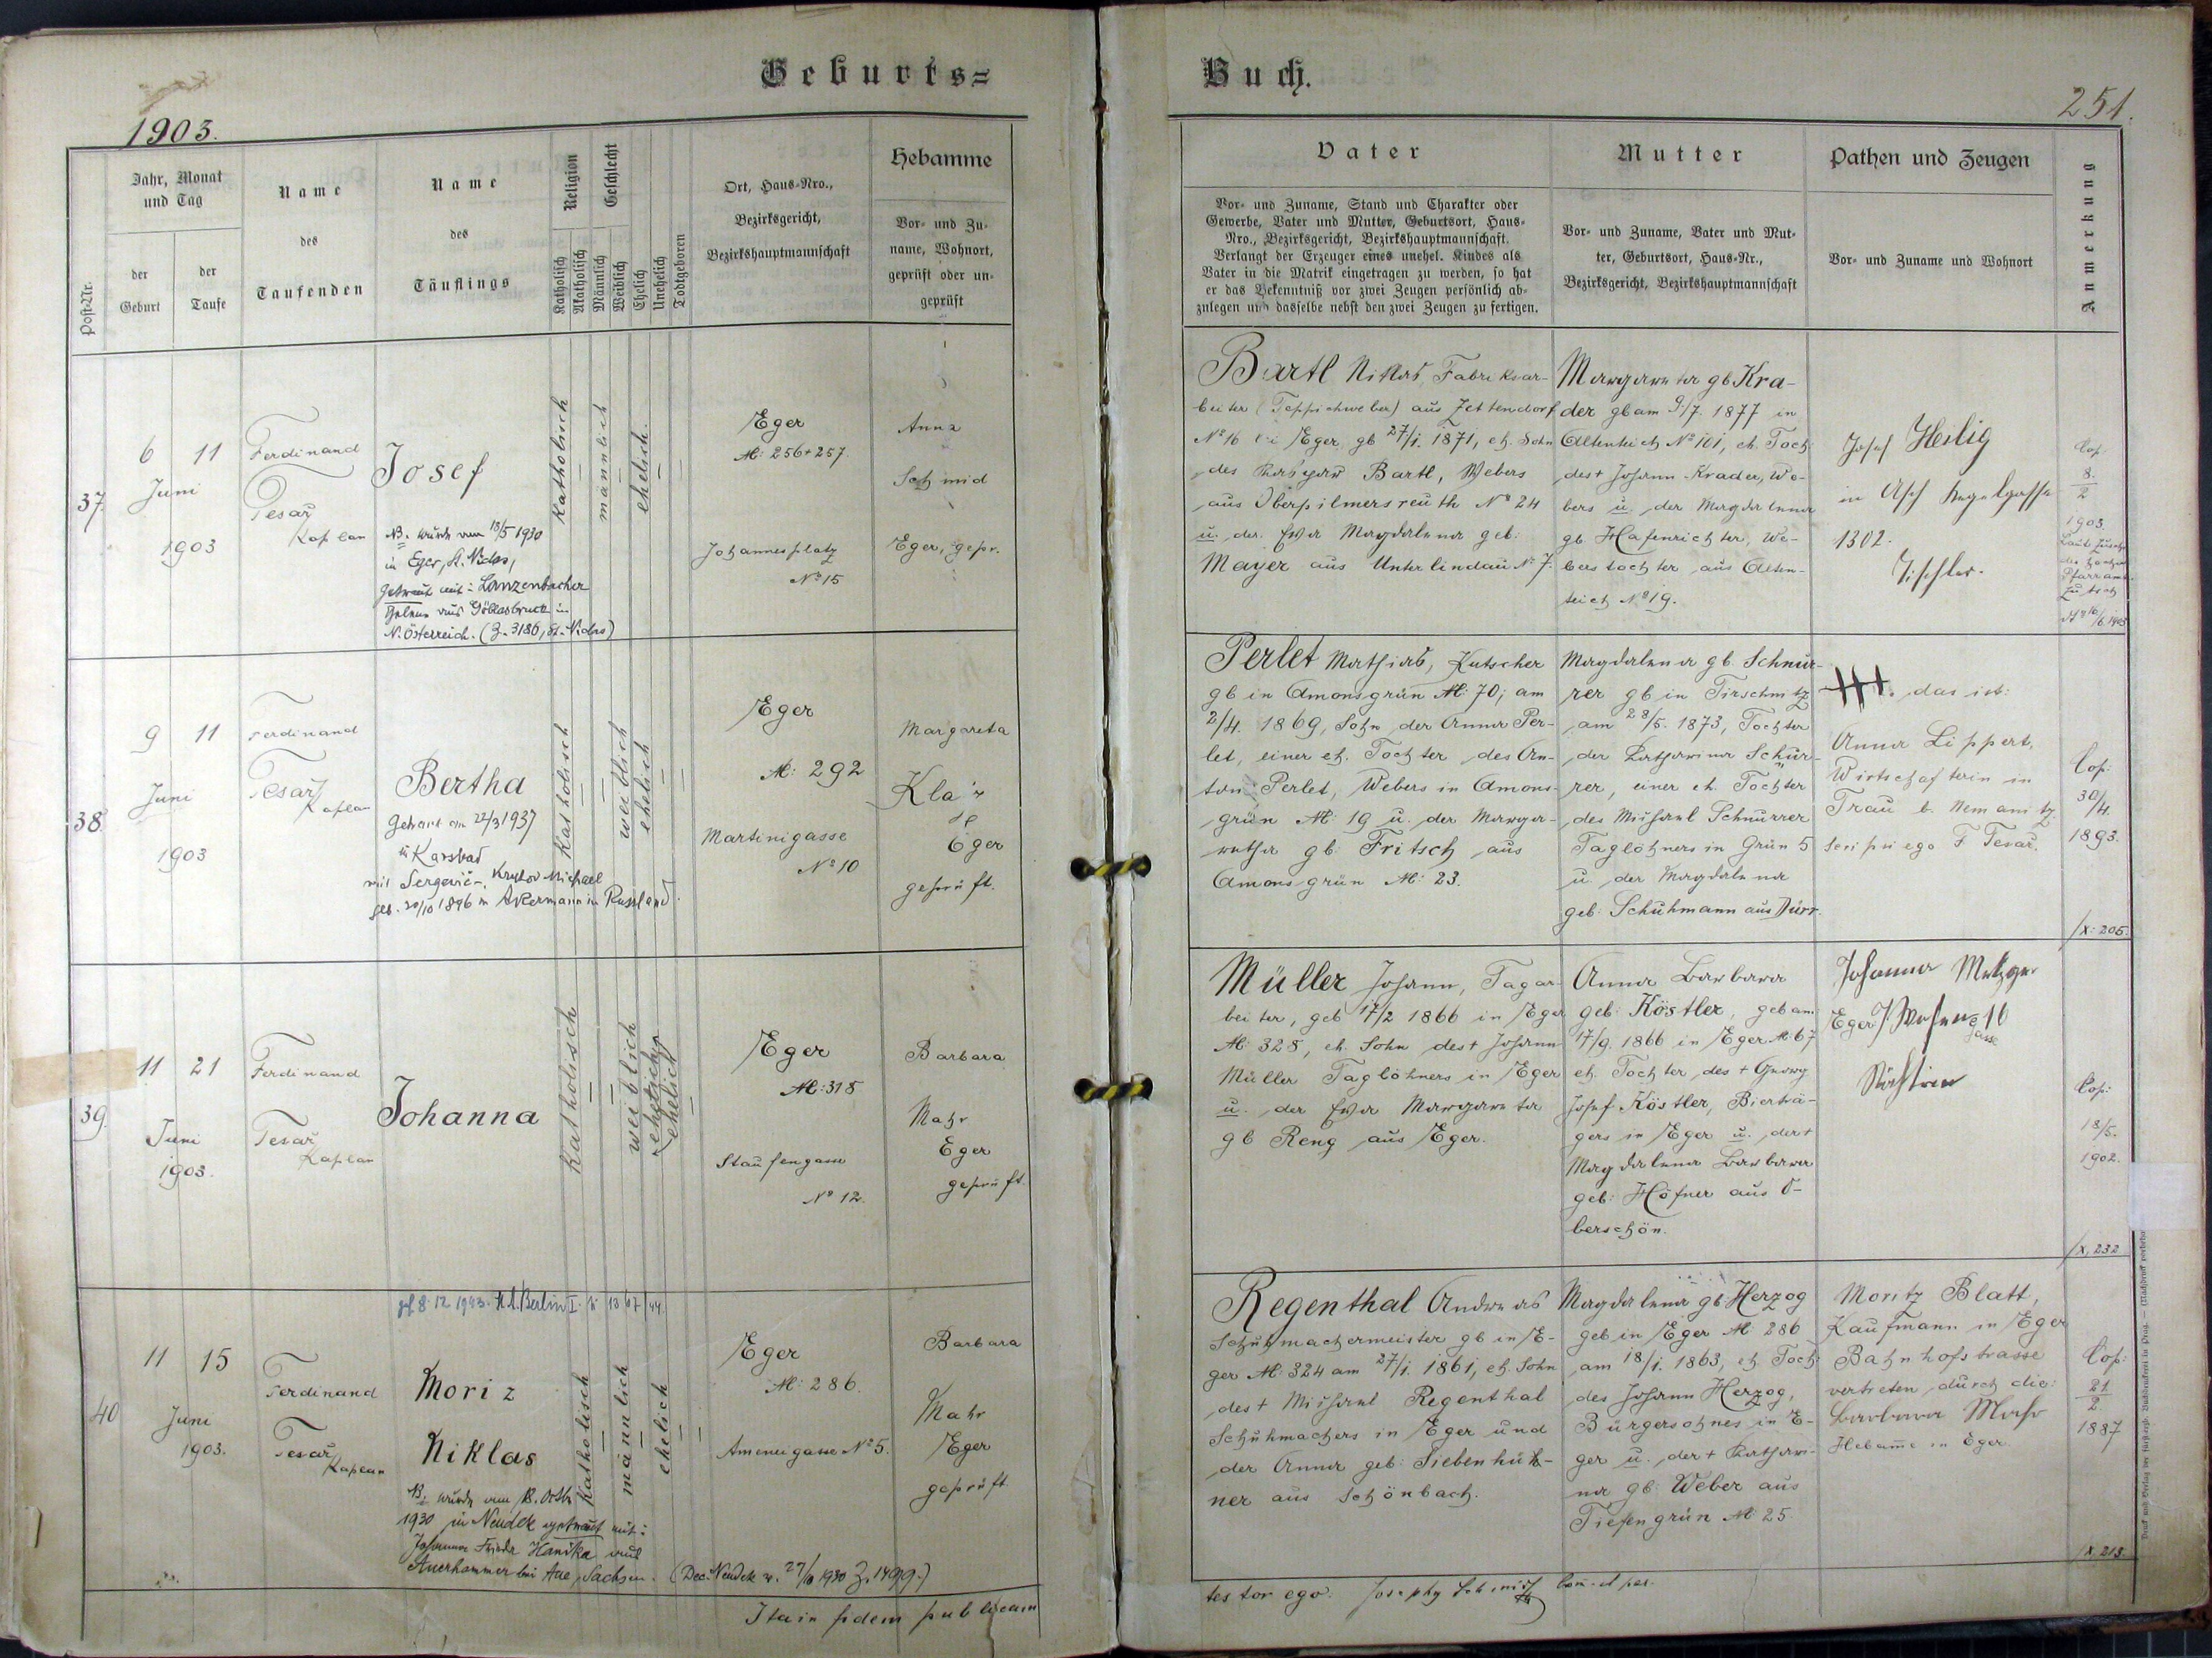 Geburts=
Buch.
1903.
251.
Post-Nr.
Jahr, Monat
und Tag
der
Geburt
der
Taufe
Name
des
Taufenden
Name
des
Täuflings
Religion
Katholisch
Akatholisch
Geschlecht
Männlich
Weiblich
Ehelich
Unehelich
Todtgeboren
Ort, Haus-Nro.,
Bezirksgericht,
Bezirkshauptmannschaft
Hebamme
Vor- und Zu-
name, Wohnort,
geprüft oder un-
geprüft
Vater
Vor- und Zuname, Stand und Charakter oder
Gewerbe, Vater und Mutter, Geburtsort, Haus-
Nro., Bezirksgericht, Bezirkshauptmannschaft.
Verlangt der Erzeuger eines unehel. Kindes als
Vater in die Matrik eingetragen zu werden, so hat
er das Bekenntniß vor zwei Zeugen persönlich ab-
zulegen und dasselbe nebst den zwei Zeugen zu fertigen.
Mutter
Vor- und Zuname, Vater und Mut-
ter, Geburtsort, Haus-Nr.,
Bezirksgericht, Bezirkshauptmannschaft
Pathen und Zeugen
Vor- und Zuname und Wohnort
Anmerkung
37.
6 11
Juni
1903
Ferdinand
Tesař
Kaplan
Josef
NB. wurde am 18/5 1930
in Eger, St. Niclas,
getraut mit: Lanzenbacher
Helene aus Göblasbruck in
N. Österreich. (Z. 3186, St. Niclas)
katholisch
männlich
ehelich.
Eger
N: 256+257.
Johannesplatz
No 15
Anna
Schmid
Eger, gepr.
Bartl Niklas, Fabriksar-
beiter (Teppichweber) aus Zettendorf
No 16 bei Eger, gb 27/1. 1871, eh. Sohn
des Kaspar Bartl, Webers
aus Oberpilmersreuth No 24
u. der Eva Magdalena geb:
Mayer aus Unterlindau No 7.
Margareta gb Kra-
der gb am 9/7. 1877 in
Altenteich No 101, eh. Toch
des + Johann Krader, We-
bers u. der Magdalena
gb Hafenrichter, We-
berstochter aus Alten-
teich No 19.
Josef Heilig
in Asch Kegelgasse
1302.
Tischler.
Cop.
8.
2
1903.
38.
9 11
Juni
1903
Ferdinand
Tesař
Kaplan
Bertha
Getraut am 22/3 1937
in Karsbad
mit Sergevič Krylov Michael
geb. 20/10 1896 in Akermann in Russland.
katholisch
weiblich
ehelich
Eger
N: 292
Martinigasse
No 10
Margareta
Eger
geprüft.
Perlet Mathias, Kutscher
gb in Amonsgrün N: 70; am
2/4. 1869, Sohn der Anna Per-
let, einer eh. Tochter des An-
ton Perlet, Webers in Amons-
grün N: 19 u. der Marga-
retha gb. Fritsch aus
Amonsgrün N: 23.
Magdalena gb. Schnur-
rer gb in Tirschnitz
am 28/5. 1873, Tochter
der Katharina Schnur-
rer, einer eh. Tochter
des Michael Schnurrer
Taglöhners in Grün 5
u. der Magdalena
geb: Schuhmann aus Dürr.
+++. das ist:
Anna Lippert,
Wirtschafterin in
Trau b. Nemanitz
scripsi ego F Tesař.
Cop:
30/4.
1893.
/X: 205.
39.
11 21
Juni
1903.
Ferdinand
Tesař
Kaplan
Johanna
katholisch
weiblich
ehelich
ehelich
Eger
N: 318
Staufengasse
No 12.
Barbara
Mahr
Eger
geprüft.
Müller Johann, Tagar-
beiter, geb 17/2 1866 in Eger
N: 328, eh. Sohn des + Johann
Müller Taglöhners in Eger
u. der Eva Margareta
gb Reng aus Eger.
Anna Barbara
geb: Köstler, geb am
17/9. 1866 in Eger N: 67
eh. Tochter des + Georg
Josef Köstler, Bierträ-
gers in Eger u. der +
Magdalena Barbara
geb: Höfner aus O-
berschön.
Johanna Metzger
Eger
Köchin
Cop:
18/5.
1902.
/X, 232
40
11 15
Juni
1903.
Ferdinand
Tesař
Kaplan
gef. 8. 12. 1943. St. A. Berlin I.
Moriz
Niklas
NB. wurde am 18. Octbr
1930 in Neudek getraut mit:
Johanna Frieda Hanika aus
Auerhammer bei Aue, Sachsen. (Dec. Neudek v. 27/10 1930 Z. 1499.)
katholisch
männlich
ehelich
Eger
N: 286.
Ameneigasse No 5.
Barbara
Mahr
Eger
geprüft
Regenthal Andreas
Schuhmachermeister gb in E-
ger N: 324 am 27/1. 1861, eh. Sohn
des + Michael Regenthal
Schuhmachers in Eger und
der Anna geb: Siebenhüh-
ner aus Schönbach.
Magdalena gb: Herzog
geb in Eger N: 286
am 18/1. 1863, eh. Toch
des Johann Herzog,
Bürgersohnes in E-
ger u. der + Kathari-
na gb: Weber aus
Tiefengrün N: 25.
Moritz Blatt,
Kaufmann in Eger
Bahnhofstrasse
vertreten durch die:
Barbara Mahr
Hebame in Eger.
Cop:
21
2.
1887
/X, 213.
Ita in fidem publicam
testor ego. Joseph